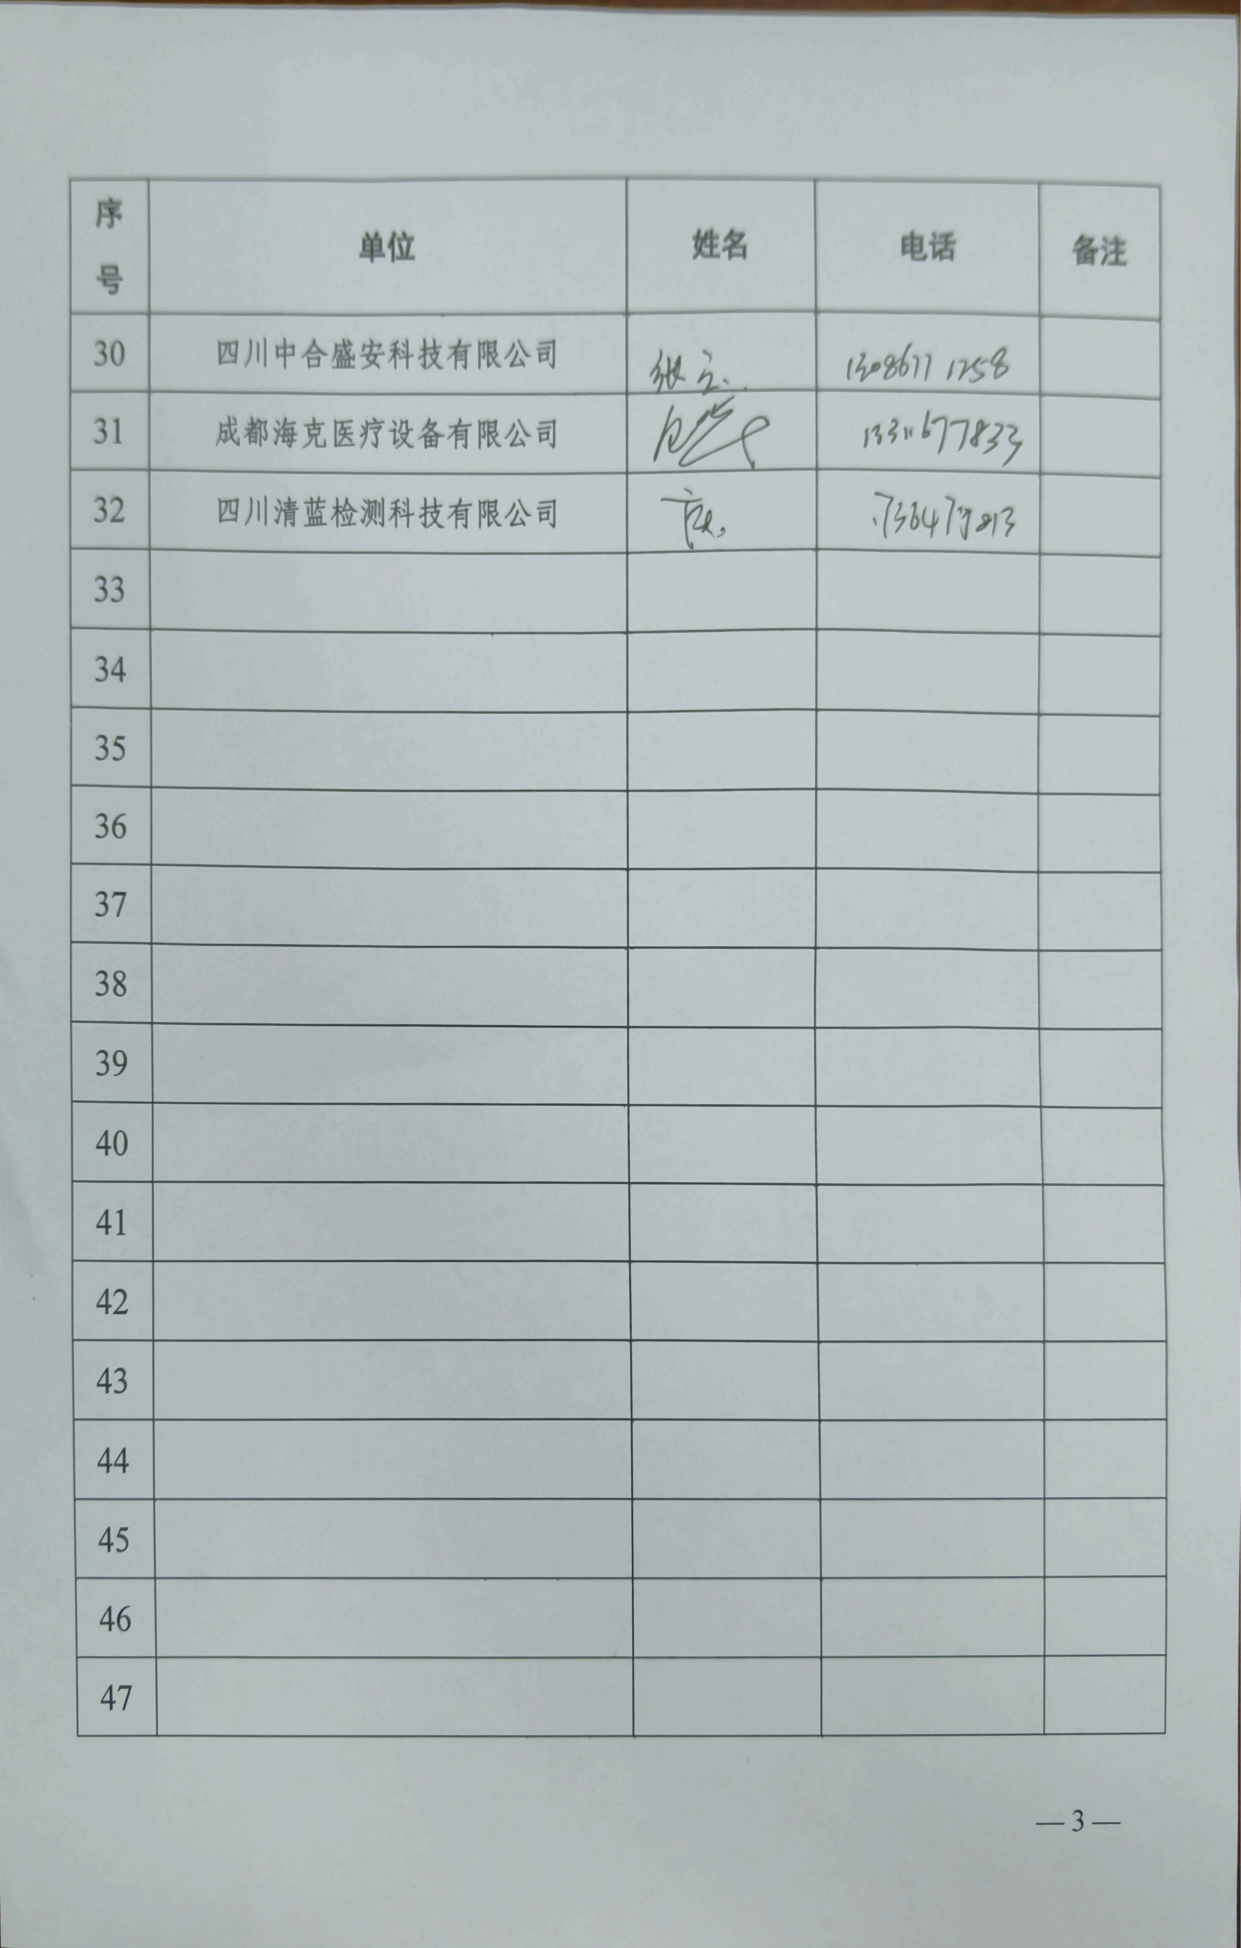 序号 单位 姓名 电话 备注
30 四川中合盛安科技有限公司 13086771258
31 成都海克医疗设备有限公司
32 四川清蓝检测科技有限公司
33
34
35
36
37
38
39
40
41
42
43
44
45
46
47
— 3 —